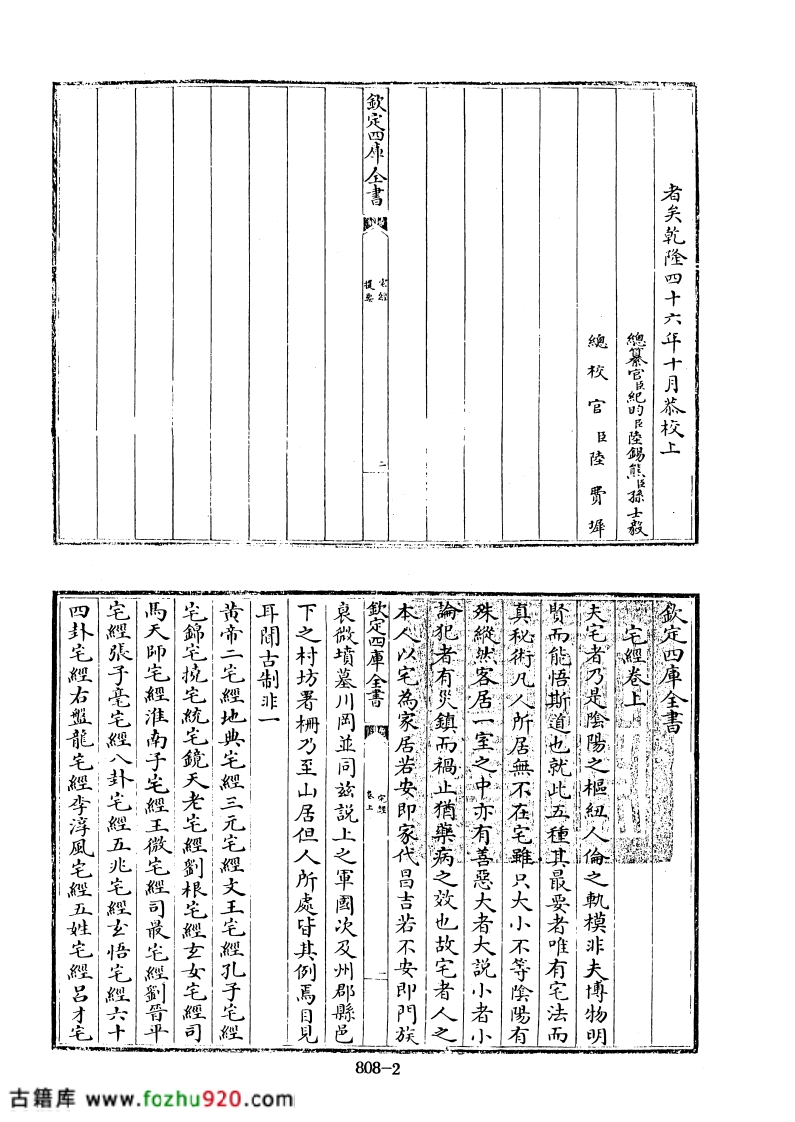 者矣乾隆四十六年十月恭校上
總纂官臣紀昀臣陸錫熊臣孫士毅
總校官臣陸費墀
欽定四庫全書
宅經
提要
二
欽定四庫全書
宅經卷上
夫宅者乃是陰陽之樞紐人倫之軌模非夫博物明
賢而能悟斯道也就此五種其最要者唯有宅法而
真秘術凡人所居無不在宅雖只大小不等陰陽有
殊縱然客居一室之中亦有善惡大者大說小者小
論犯者有災鎮而禍止猶藥病之效也故宅者人之
本人以宅為家居若安即家代昌吉若不安即門族
欽定四庫全書
宅經
卷上
衰微墳墓川岡並同兹說上之軍國次及州郡縣邑
下之村坊署柵乃至山居但人所處皆其例焉目見
耳聞古制非一
黃帝二宅經地典宅經三元宅經文王宅經孔子宅經
宅錦宅撓宅統宅鏡天老宅經劉根宅經玄女宅經司
馬天師宅經淮南子宅經王微宅經司最宅經劉晉平
宅經張子毫宅經八卦宅經五兆宅經玄悟宅經六十
四卦宅經右盤龍宅經李淳風宅經五姓宅經呂才宅
808-2
古籍库 www.fozhu920.com